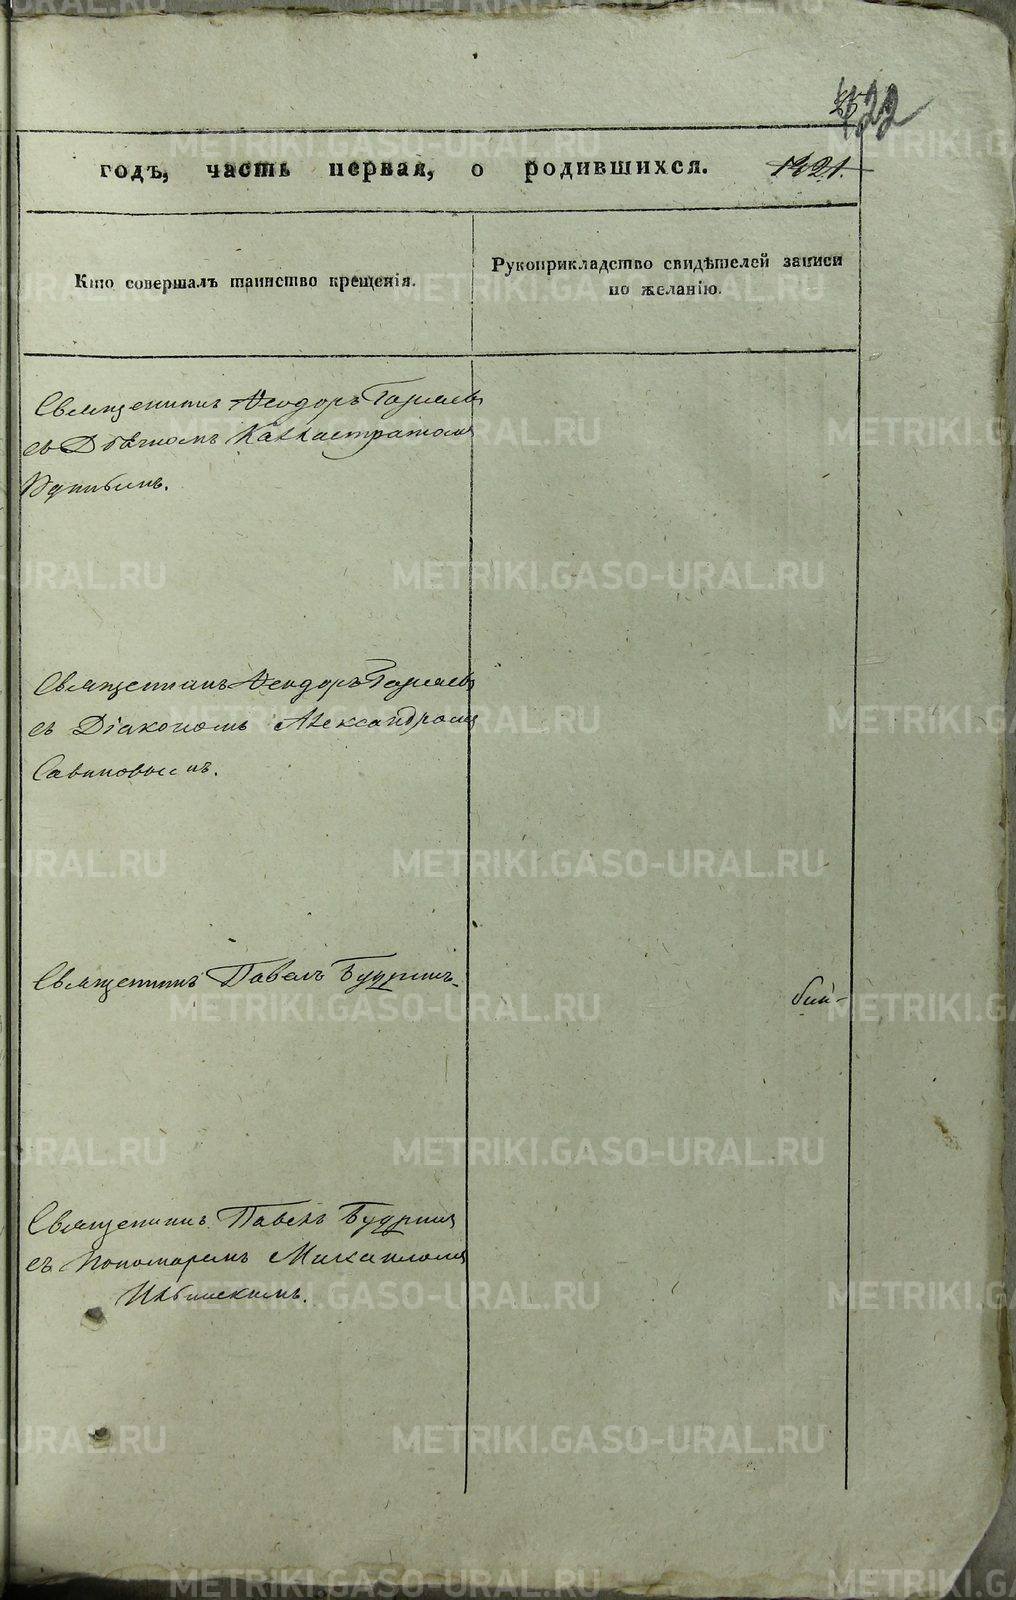 122
годъ, часть первая, о родившихся. 1321.
Кто совершалъ таинство крещенія.
Рукоприкладство свидѣтелей записи
по желанію.
Священникъ Ѳеодоръ
съ Дьячкомъ Каллистратомъ
Священникъ Ѳеодоръ
съ Діакономъ Александромъ
Савиновымъ.
Священникъ Павелъ Будринъ.
Священникъ Павелъ Будринъ
съ Пономаремъ Михаиломъ
METRIKI.GASO-URAL.RU